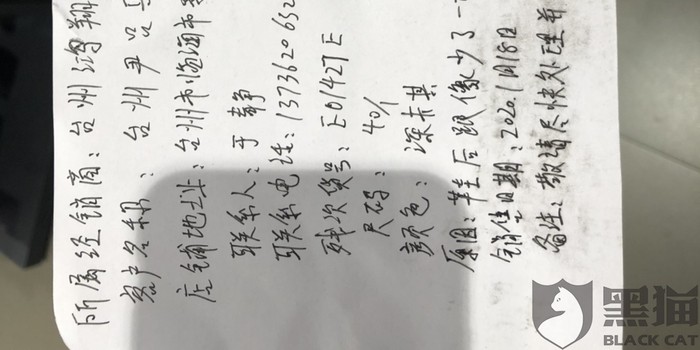 所属经销商：台州鸿翔
客户名称：台州尹
店铺地址：台州市临海市
联系人：于静
联系电话：1373620652
残次货号：E01427E
尺码：40/1
颜色：深卡其
原因：鞋后跟像少了一
销售日期：2020.1月18日
备注：敬请尽快处理并
黑猫
BLACK CAT